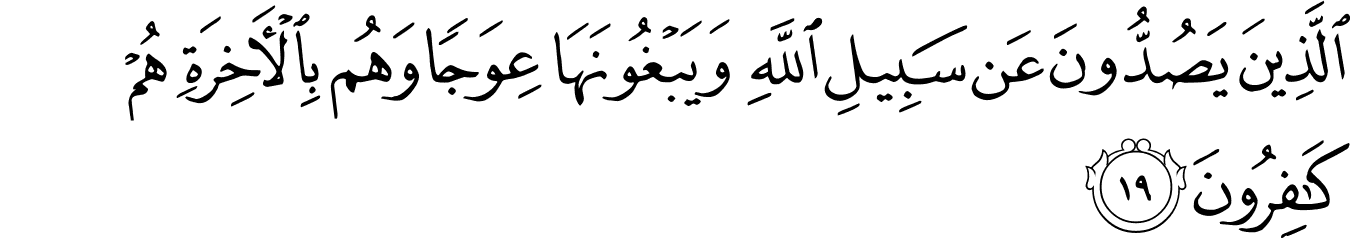 ٱلَّذِينَ يَصُدُّونَ عَن سَبِيلِ ٱللَّهِ وَيَبْغُونَهَا عِوَجًا وَهُم بِٱلْأَخِرَةِ هُمْ
كَٰفِرُونَ ١٩